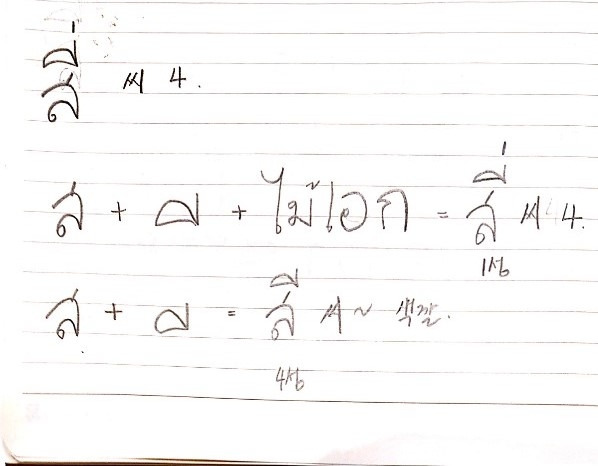 สี่ 씨 4.
ส + ี + ไม้เอก = สี่ 씨 4.
1성
ส + ี = สี 씨~ 색깔.
4성